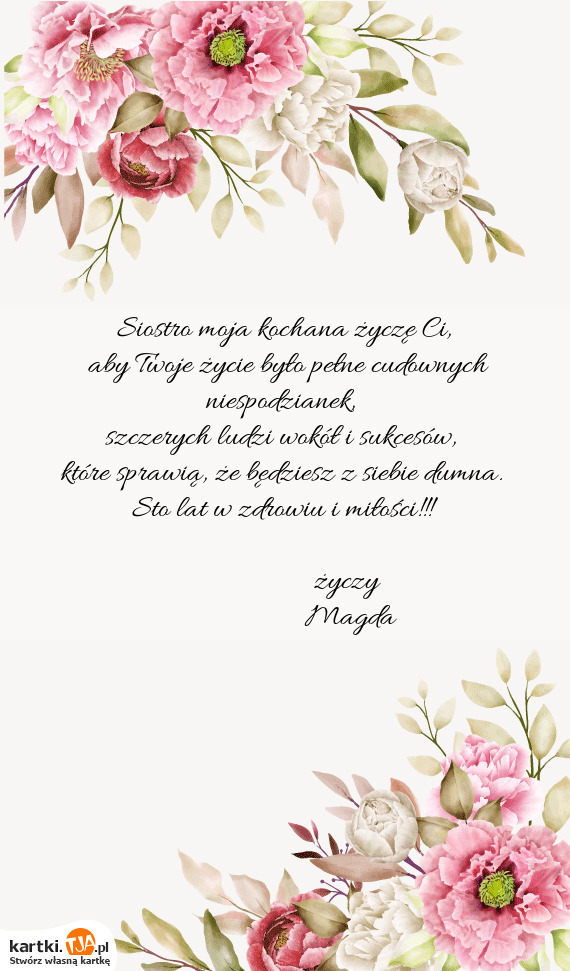 Siostro moja kochana życzę Ci,
aby Twoje życie było pełne cudownych
niespodzianek,
szczerych ludzi wokół i sukcesów,
które sprawią, że będziesz z siebie dumna.
Sto lat w zdrowiu i miłości!!!
życzy
Magda
kartki.TJA.pl
Stwórz własną kartkę